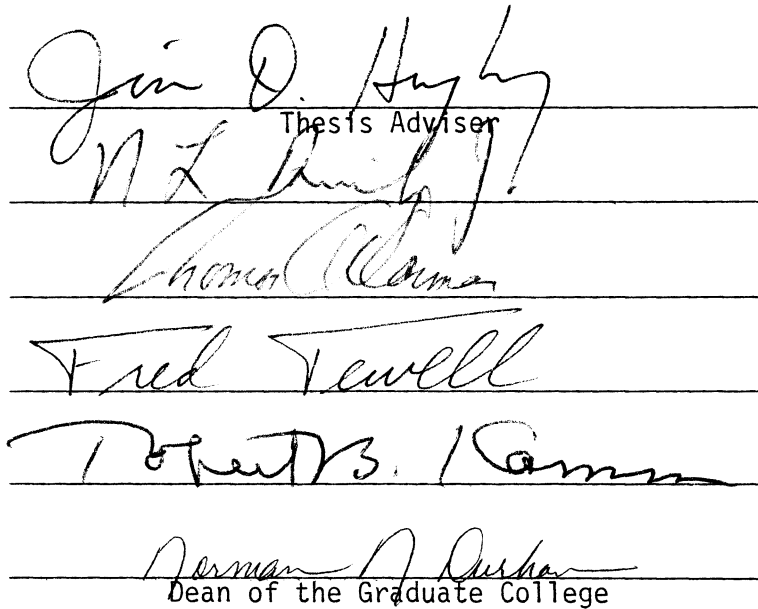 Jim D.
Thesis Adviser
N L
Thomas
Fred Tewell
Robert B. Kamm
Norman N Durham
Dean of the Graduate College